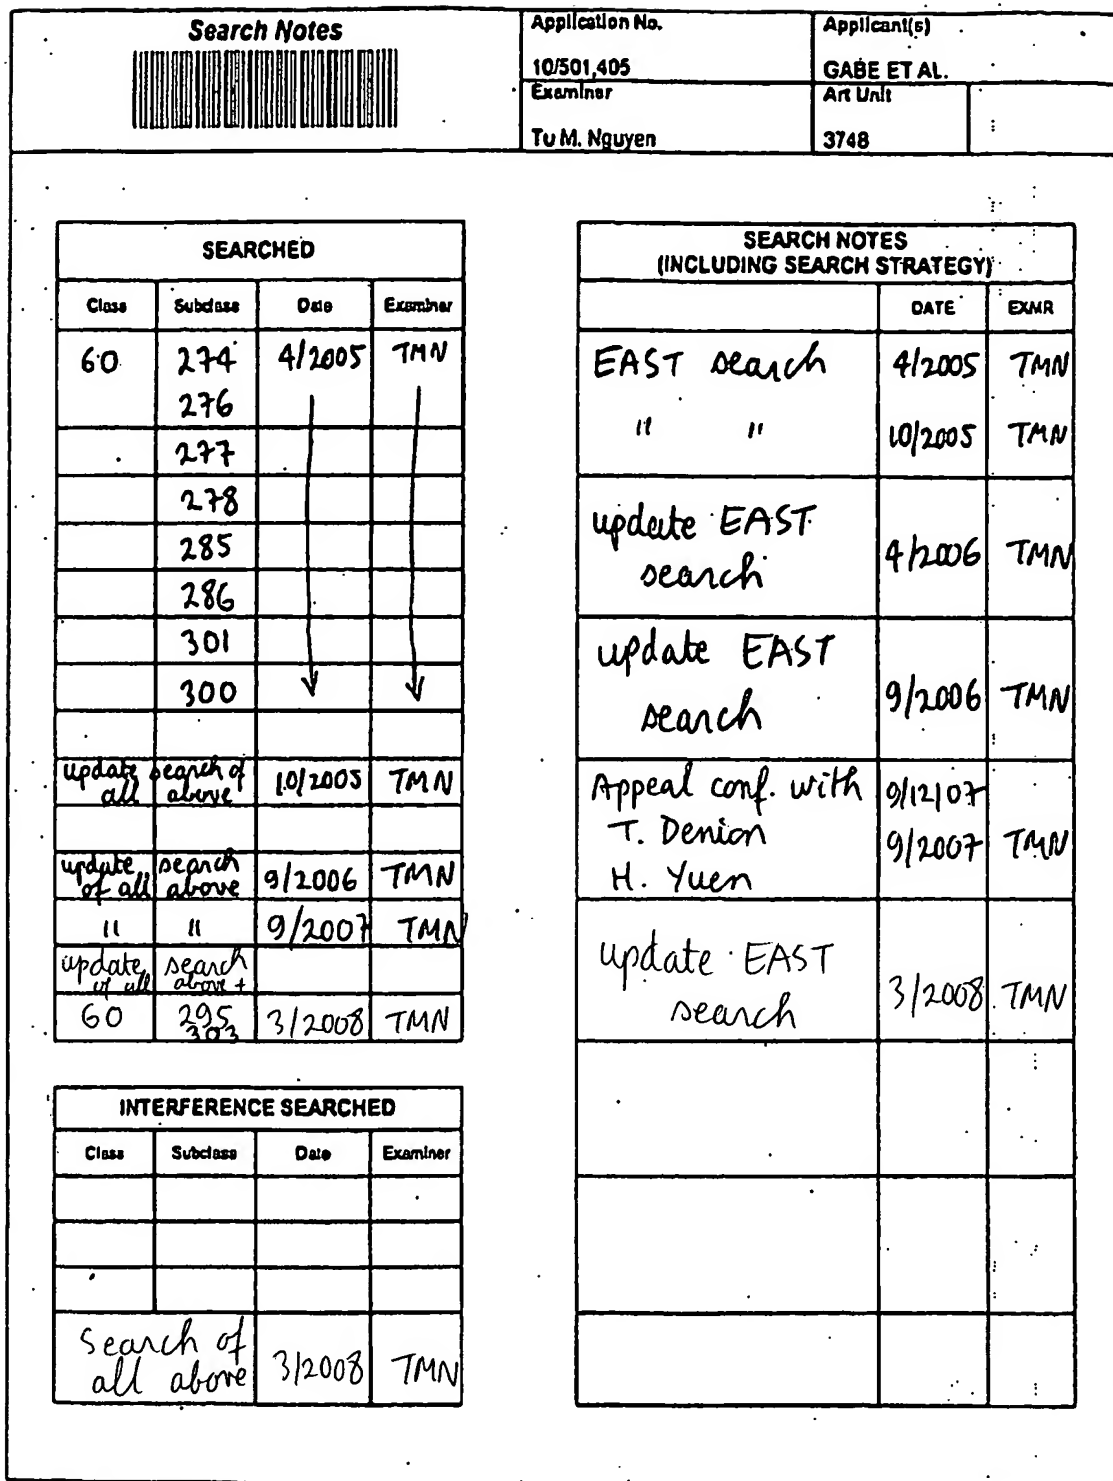 Search Notes
Application No.
Applicant(s)
10/501,405
GABE ET AL.
Examiner
Art Unit
Tu M. Nguyen
3748
SEARCHED
Class Subclass Date Examiner
60 274 4/2005 TMN
276
277
278
285
286
301
300
update search of
all above 10/2005 TMN
update search
of all above 9/2006 TMN
" " 9/2007 TMN
update search
of all above +
60 295 3/2008 TMN
303
INTERFERENCE SEARCHED
Class Subclass Date Examiner
Search of
all above 3/2008 TMN
SEARCH NOTES
(INCLUDING SEARCH STRATEGY)
DATE EXMR
EAST search 4/2005 TMN
" " 10/2005 TMN
update EAST
search 4/2006 TMN
update EAST
search 9/2006 TMN
Appeal conf. with 9/12/07
T. Denion 9/2007 TMN
H. Yuen
update EAST
search 3/2008 TMN